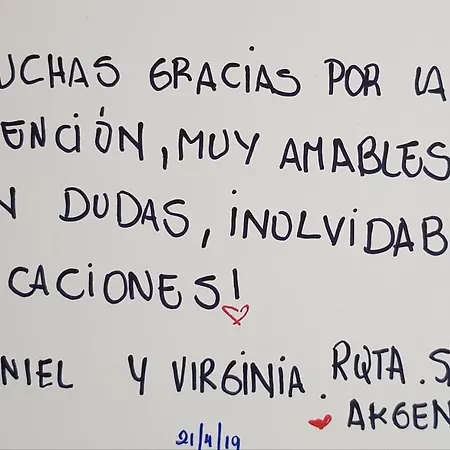 UCHAS GRACIAS POR LA
ENCIÓN, MUY AMABLES
N DUDAS, INOLVIDAB
CACIONES!
NIEL Y VIRGINIA. RQTA. S
ARGEN
21/4/19